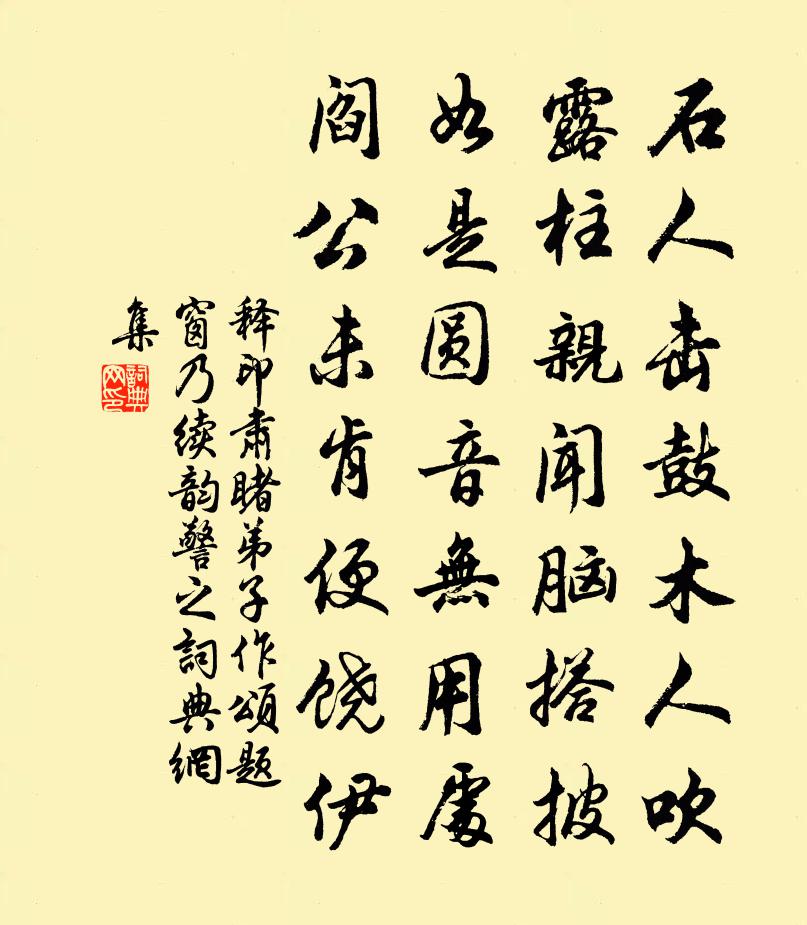 石人击鼓木人吹
露柱親闻脑搭披
如是圆音無用處
阎公未肯便饶伊
释印肃睹弟子作頌题
窗乃续韵警之詞典網
集
詞典网印